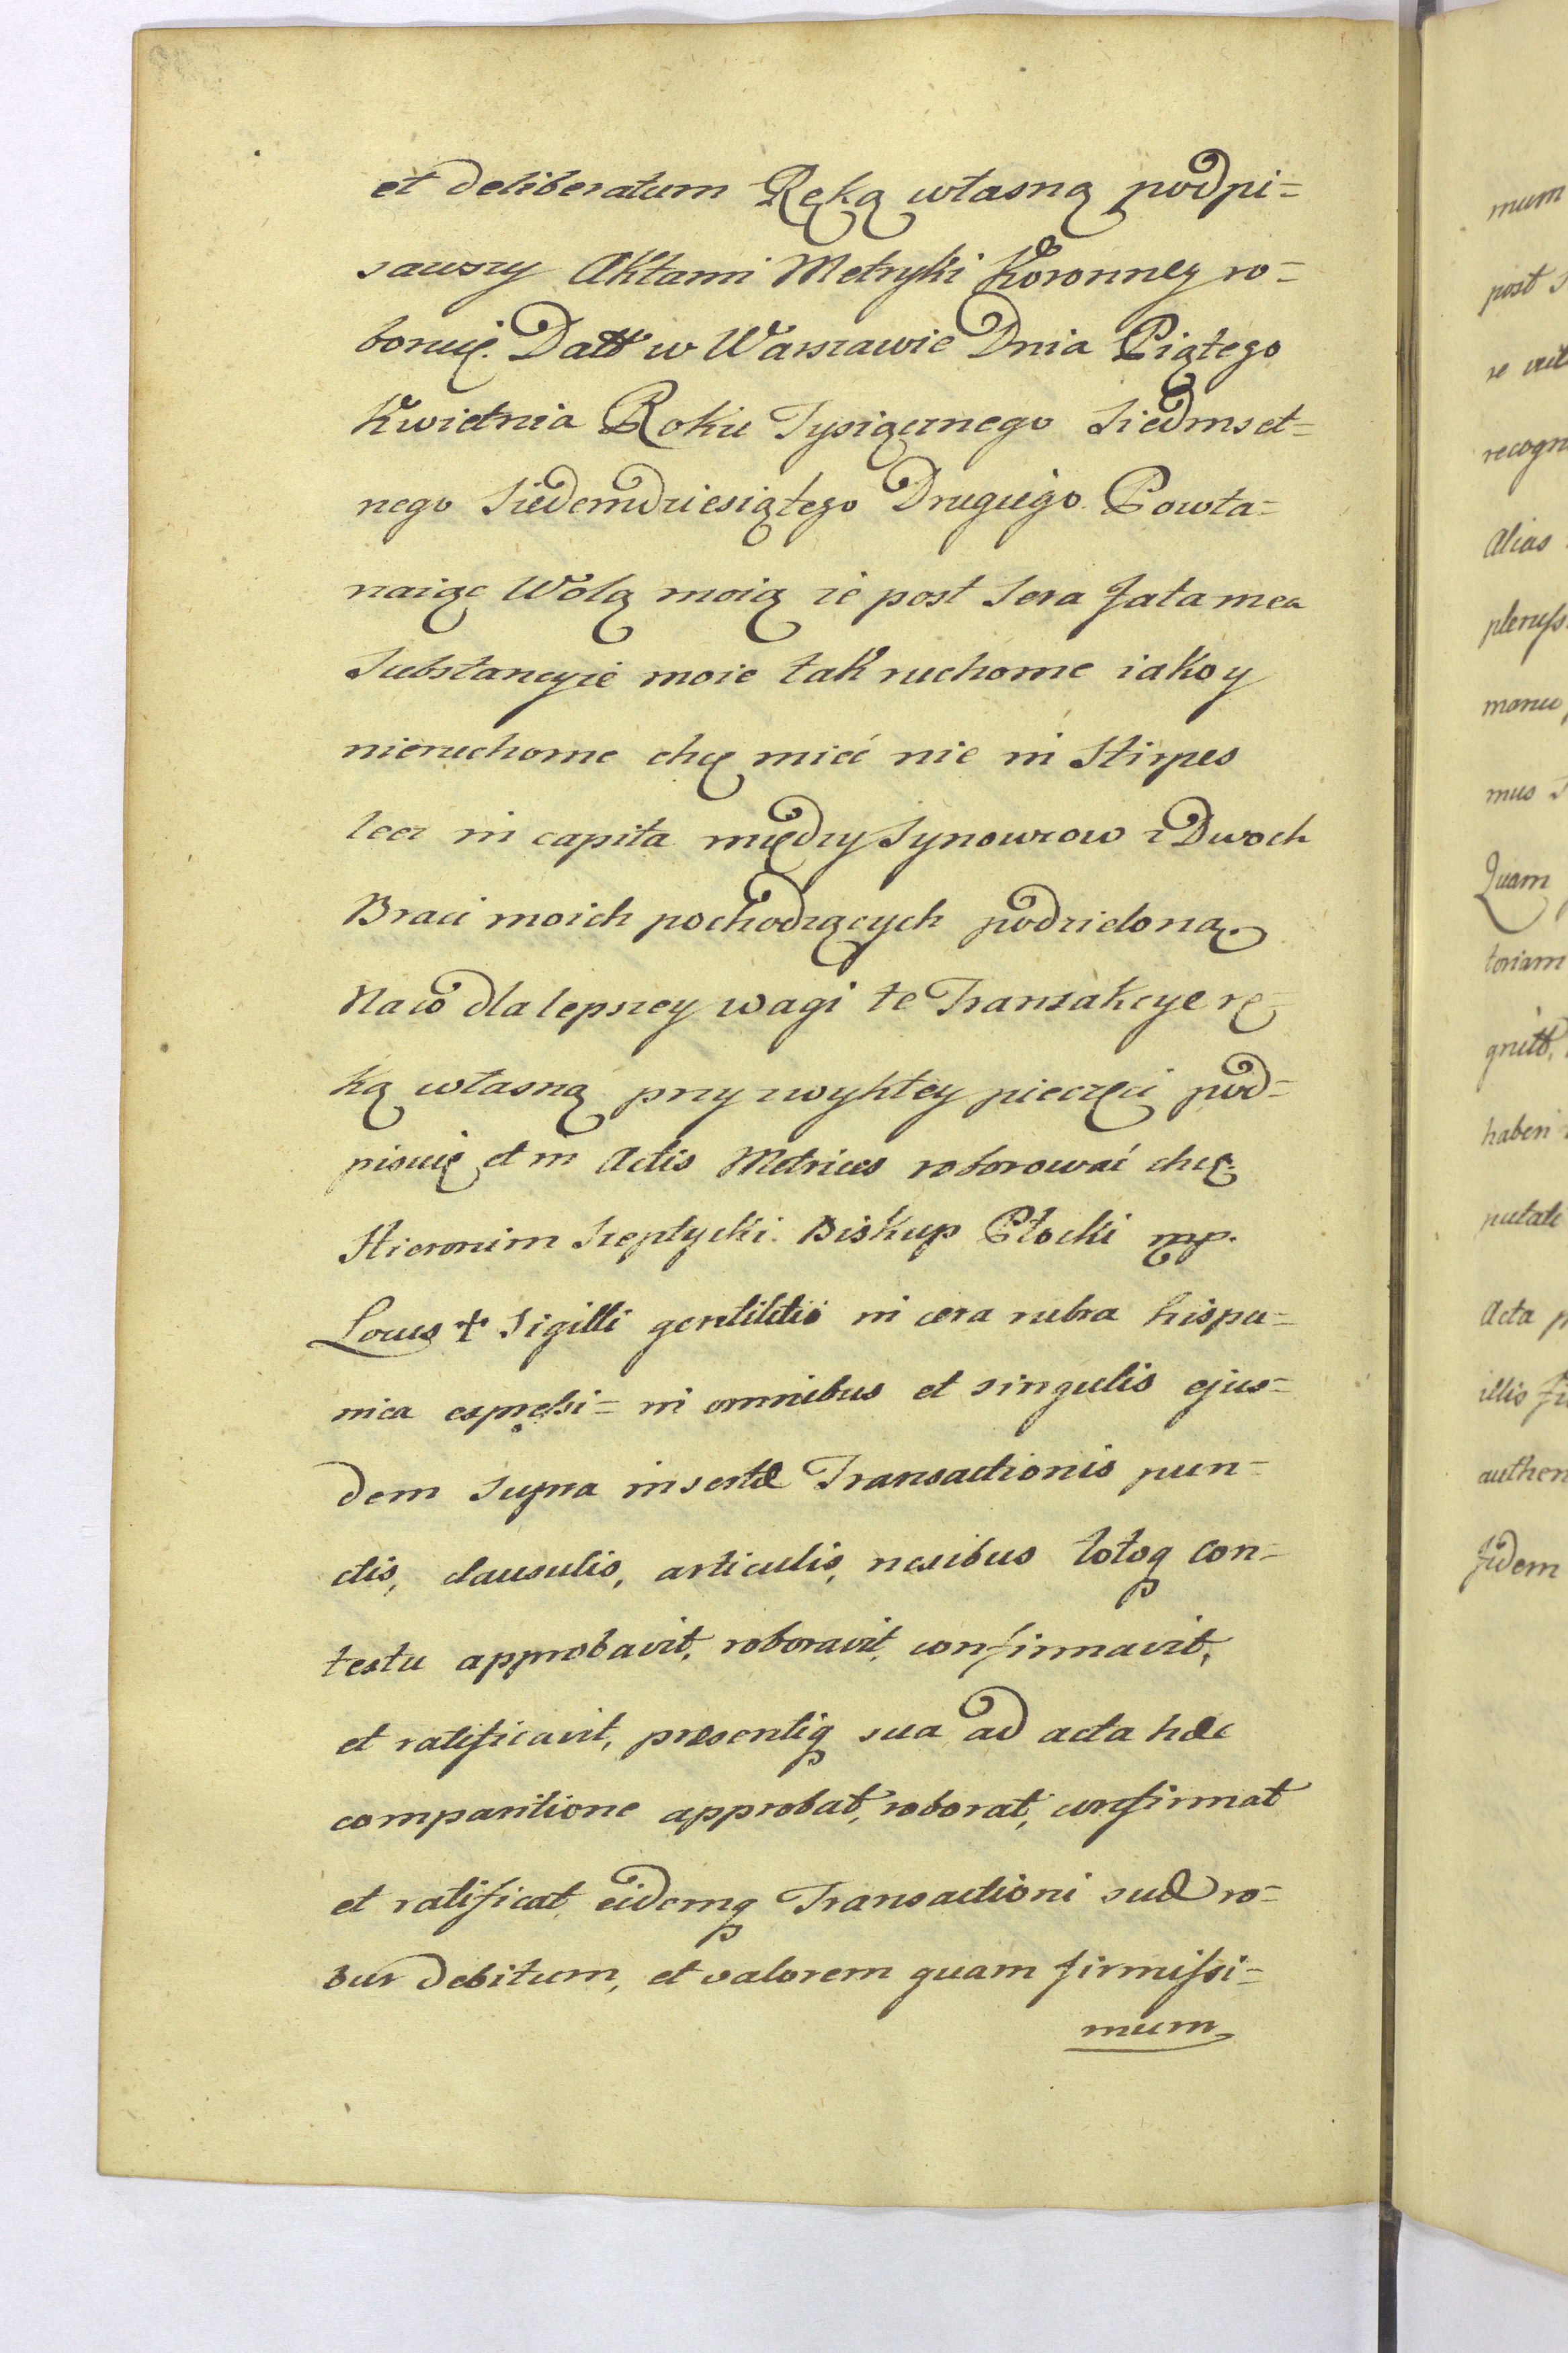 et deliberatum Ręką własną podpi=
sawszy Aktami Metryki Koronney ro=
boruię. Datt w Warszawie Dnia Piątego
Kwietnia Roku Tysiącznego Siedmset=
nego Siedemdziesiątego Drugiego. Powta=
naiąc Wolą moią że post sera fata mea
Substancyie moie tak ruchome iako y
nieruchome chcę mieć nie in Stirpes
lecz in capita między Synowcow z Dwoch
Braci moich pochodzących podzieloną.
Na co dla lepszey wagi te Tranzakcye rę=
ką własną przy zwykłey pieczęci pod=
pisuię et in Actis Metrices roborować chcę.
Hieronim Szeptycki Biskup Płocki mp.
Locus + Sigilli gentilitii in cera rubra hispa=
nica expressi = in omnibus et singulis ejus=
dem supra insertæ Transactionis pun=
ctis, clausulis, articulis, nexibus totoq con=
textu approbavit, roboravit, confirmavit,
et ratificavit, præsentiq sua ad acta hæc
comparitione approbat, roborat, confirmat
et ratificat, eidemq Transactioni suæ ro=
bur debitum, et valorem quam firmissi=
mum
mum
post
recogn
Alias
manu
mus
Quam
toriam
haberi
Acta
illis
authen
fidem